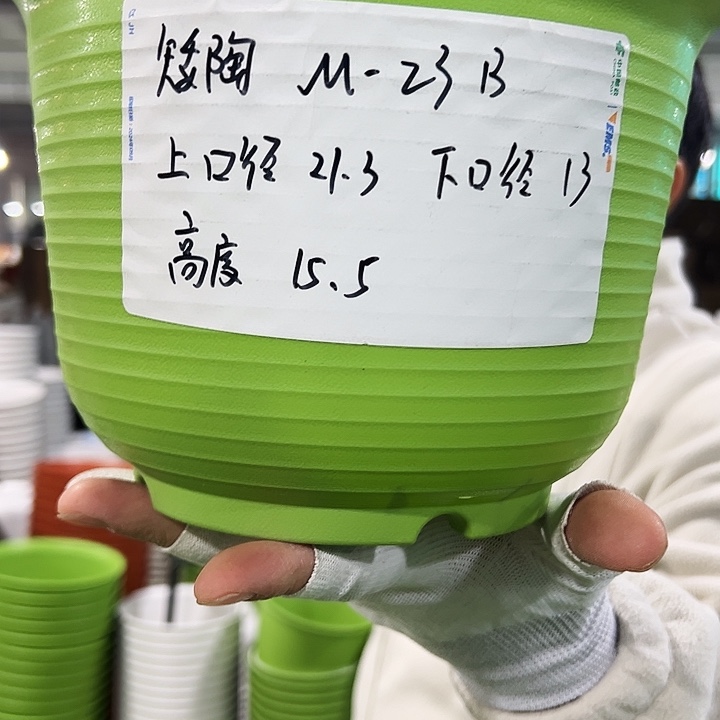 矮陶 M-23B
上口径 21.3 下口径 13
高度 15.5
EMS